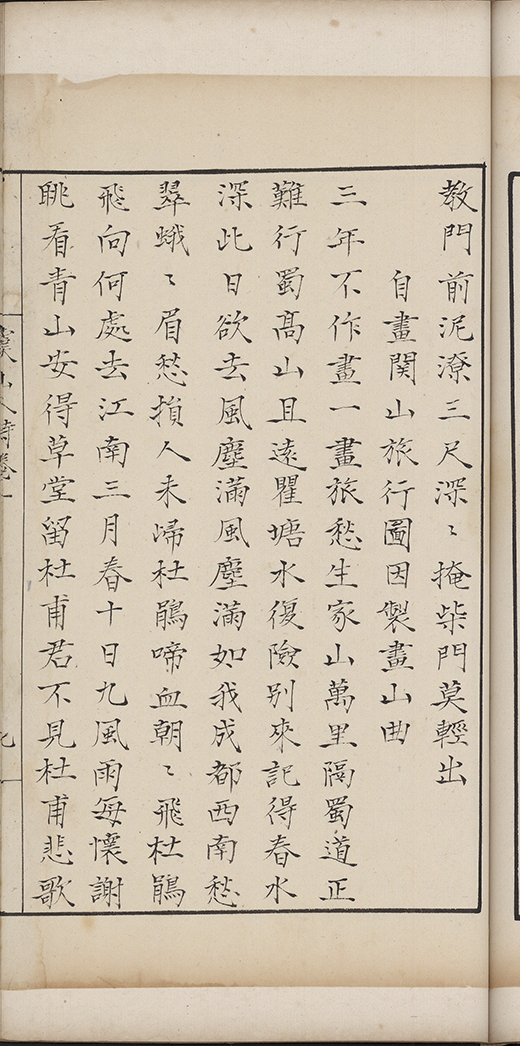 教門前泥潦三尺深〻掩柴門莫輕出
自畫関山旅行圖因製畫山曲
三年不作畫一畫旅愁生家山萬里隔蜀道正
難行蜀髙山且遠瞿塘水復險别來記得春水
深此日欲去風塵滿風塵滿如我成都西南愁
翠蛾〻眉愁損人未歸杜鵑啼血朝〻飛杜鵑
飛向何處去江南三月春十日九風雨每懷謝
眺看青山安得草堂留杜甫君不見杜甫悲歌
山人詩卷一
九